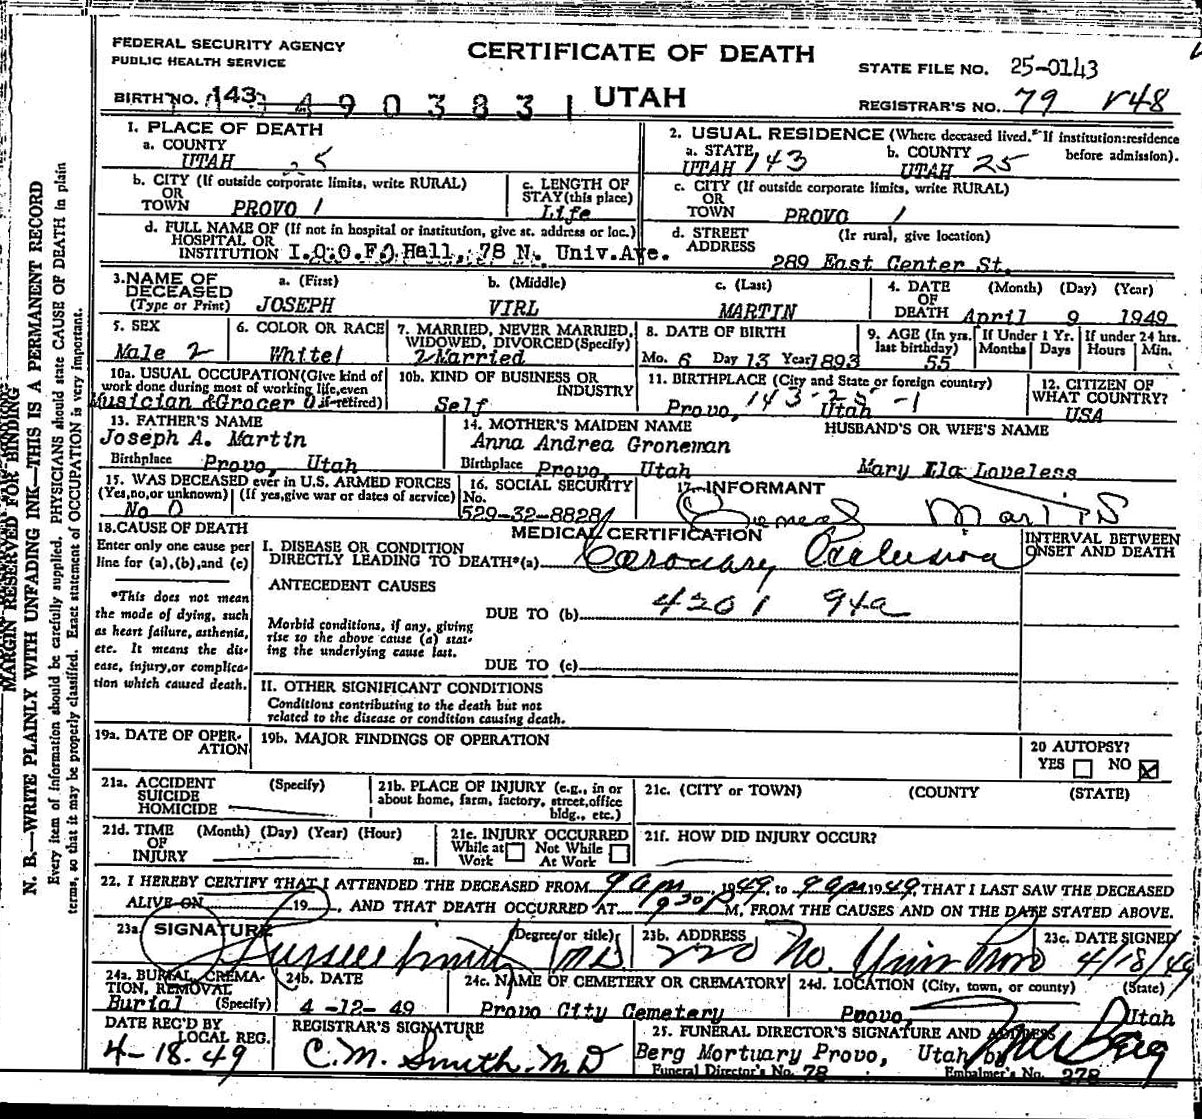 FEDERAL SECURITY AGENCY
PUBLIC HEALTH SERVICE
CERTIFICATE OF DEATH
STATE FILE NO. 25-0143
BIRTH NO. 143 4 9 0 3 8 3 1
UTAH
REGISTRAR'S NO. 79 V48
1. PLACE OF DEATH
a. COUNTY
UTAH 25
2. USUAL RESIDENCE (Where deceased lived. If institution:residence before admission).
a. STATE b. COUNTY
UTAH 143 UTAH 25
b. CITY (If outside corporate limits, write RURAL)
OR
TOWN PROVO 1
c. LENGTH OF
STAY (this place)
Life
c. CITY (If outside corporate limits, write RURAL)
OR
TOWN PROVO 1
d. FULL NAME OF (If not in hospital or institution, give st. address or loc.)
HOSPITAL OR
INSTITUTION I.O.O.F. Hall, 78 N. Univ.Ave.
d. STREET (If rural, give location)
ADDRESS
289 East Center St.
3. NAME OF a. (First) b. (Middle) c. (Last)
DECEASED
(Type or Print) JOSEPH VIRL MARTIN
4. DATE (Month) (Day) (Year)
OF
DEATH April 9 1949
5. SEX
Male 2
6. COLOR OR RACE
White 1
7. MARRIED, NEVER MARRIED,
WIDOWED, DIVORCED(Specify)
2 Married
8. DATE OF BIRTH
Mo. 6 Day 13 Year 1893
9. AGE (In yrs. last birthday) If Under 1 Yr. If under 24 hrs.
55 Months Days Hours Min.
10a. USUAL OCCUPATION(Give kind of
work done during most of working life,even
if retired)
Musician & Grocer
10b. KIND OF BUSINESS OR
INDUSTRY
Self
11. BIRTHPLACE (City and State or foreign country)
Provo, 143-25-1 Utah
12. CITIZEN OF
WHAT COUNTRY?
USA
13. FATHER'S NAME
Joseph A. Martin
Birthplace Provo, Utah
14. MOTHER'S MAIDEN NAME
Anna Andrea Groneman
Birthplace Provo, Utah
HUSBAND'S OR WIFE'S NAME
Mary Ila Loveless
15. WAS DECEASED ever in U.S. ARMED FORCES
(Yes,no,or unknown) (If yes,give war or dates of service)
No 0
16. SOCIAL SECURITY
No.
529-32-8828
17. INFORMANT
Martin
18. CAUSE OF DEATH
Enter only one cause per
line for (a),(b),and (c)
*This does not mean
the mode of dying, such
as heart failure, asthenia,
etc. It means the dis-
ease, injury,or complica-
tion which caused death.
MEDICAL CERTIFICATION
INTERVAL BETWEEN
ONSET AND DEATH
I. DISEASE OR CONDITION
DIRECTLY LEADING TO DEATH*(a) Coronary Occlusion
ANTECEDENT CAUSES
DUE TO (b) 4201 94a
Morbid conditions, if any, giving
rise to the above cause (a) stat-
ing the underlying cause last.
DUE TO (c)
II. OTHER SIGNIFICANT CONDITIONS
Conditions contributing to the death but not
related to the disease or condition causing death.
19a. DATE OF OPER-
ATION
19b. MAJOR FINDINGS OF OPERATION
20 AUTOPSY?
YES NO
21a. ACCIDENT (Specify)
SUICIDE
HOMICIDE
21b. PLACE OF INJURY (e.g., in or
about home, farm, factory, street,office
bldg., etc.)
21c. (CITY or TOWN) (COUNTY) (STATE)
21d. TIME (Month) (Day) (Year) (Hour)
OF
INJURY m.
21e. INJURY OCCURRED
While at Not While
Work At Work
21f. HOW DID INJURY OCCUR?
22. I HEREBY CERTIFY THAT I ATTENDED THE DECEASED FROM 9 apr 1949, to 9 apr 1949, THAT I LAST SAW THE DECEASED
ALIVE ON 19 , AND THAT DEATH OCCURRED AT 930 P M, FROM THE CAUSES AND ON THE DATE STATED ABOVE.
23a. SIGNATURE (Degree or title)
Russell Smith MD
23b. ADDRESS
220 No. Univ Provo
23c. DATE SIGNED
4/18/49
24a. BURIAL, CREMA-
TION, REMOVAL
Burial (Specify)
24b. DATE
4-12-49
24c. NAME OF CEMETERY OR CREMATORY
Provo City Cemetery
24d. LOCATION (City, town, or county) (State)
Provo, Utah
DATE REC'D BY
LOCAL REG.
4-18-49
REGISTRAR'S SIGNATURE
C.M. Smith. M D
25. FUNERAL DIRECTOR'S SIGNATURE AND ADDRESS
Berg Mortuary Provo, Utah by Berg
Funeral Director's No. 78 Embalmer's No. 278
MARGIN RESERVED FOR BINDING
N. B.—WRITE PLAINLY WITH UNFADING INK—THIS IS A PERMANENT RECORD
Every item of information should be carefully supplied. PHYSICIANS should state CAUSE OF DEATH in plain
terms, so that it may be properly classified. Exact statement of OCCUPATION is very important.